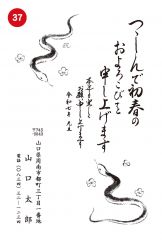 37
つつしんで初春の
およろこびを
申し上げます
本年も宜しく
お願い申し上げます
令和七年 元旦
〒745
山口県周南市都町三丁目一番地
山口太郎
電話(〇八三四)三二-一二三